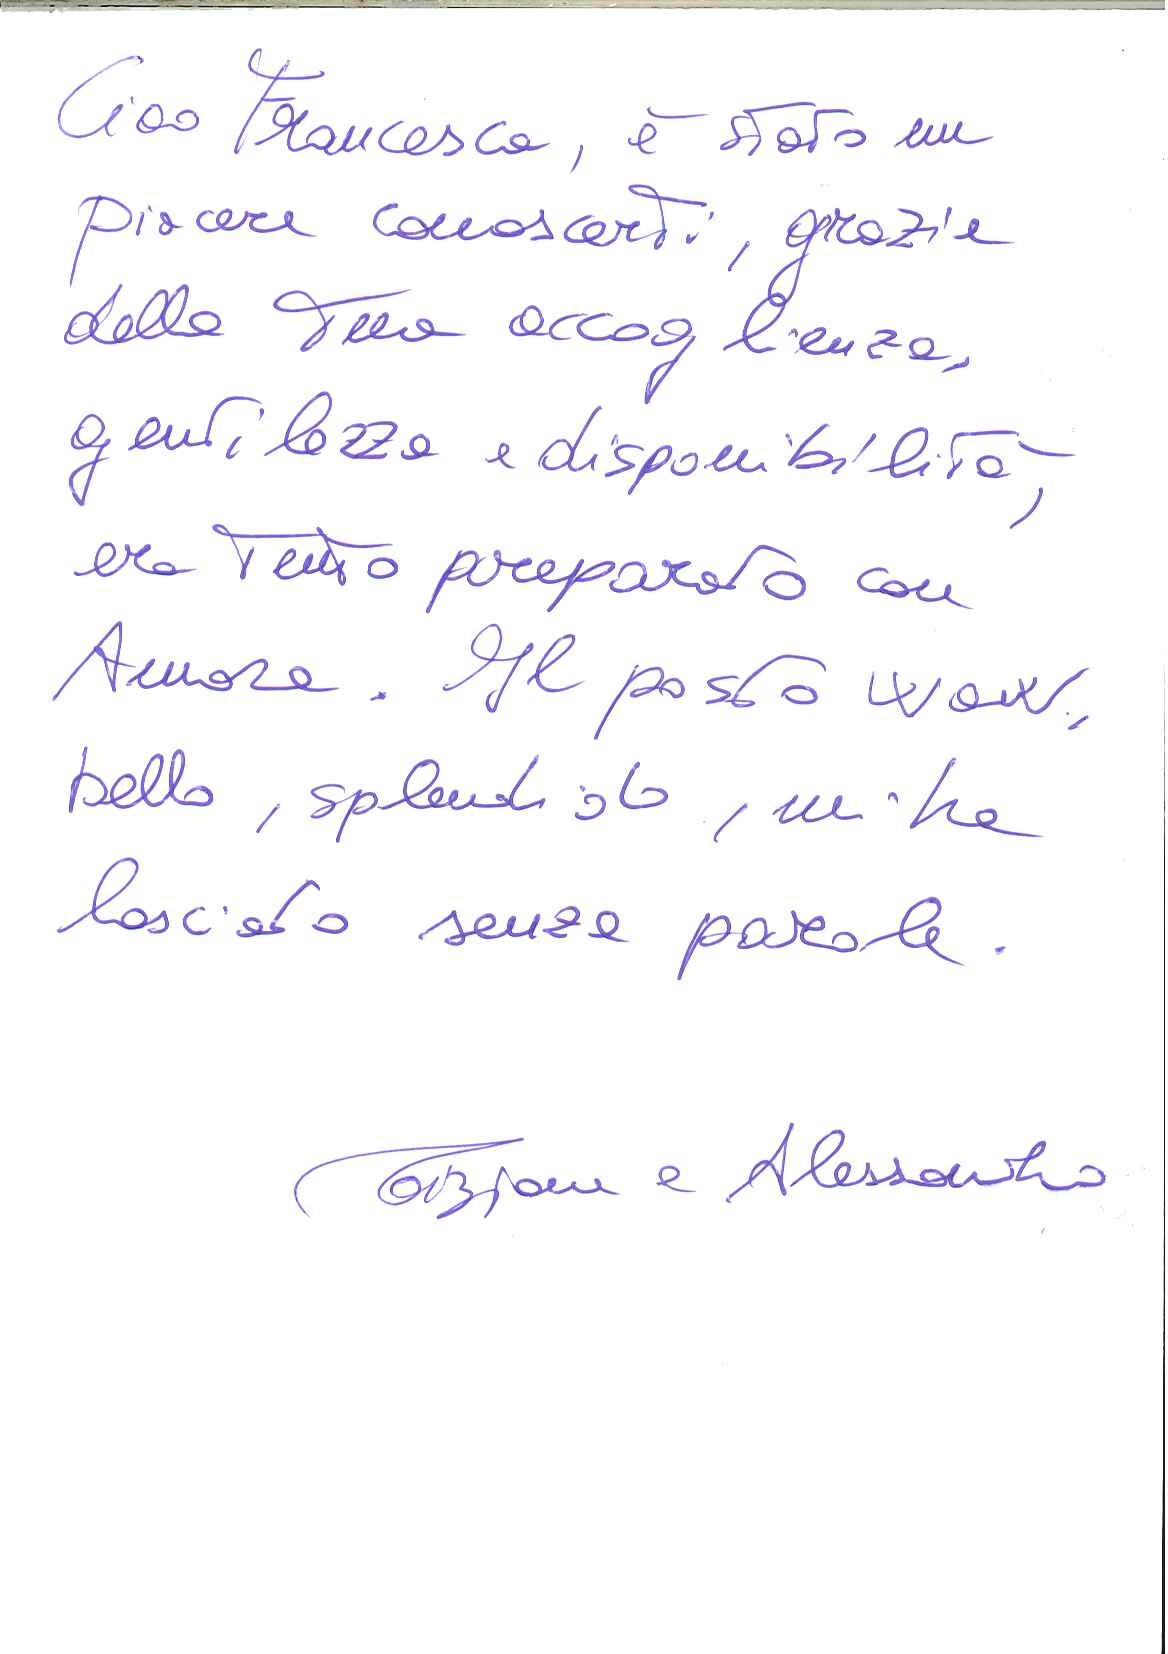 Ciao Francesca, è stato un
piacere conoscerti, grazie
della Tua accoglienza,
gentilezza e disponibilità,
era Tutto preparato con
Amore. Il posto wow,
bello, splendido, mi ha
lasciato senza parole.
e Alessandro